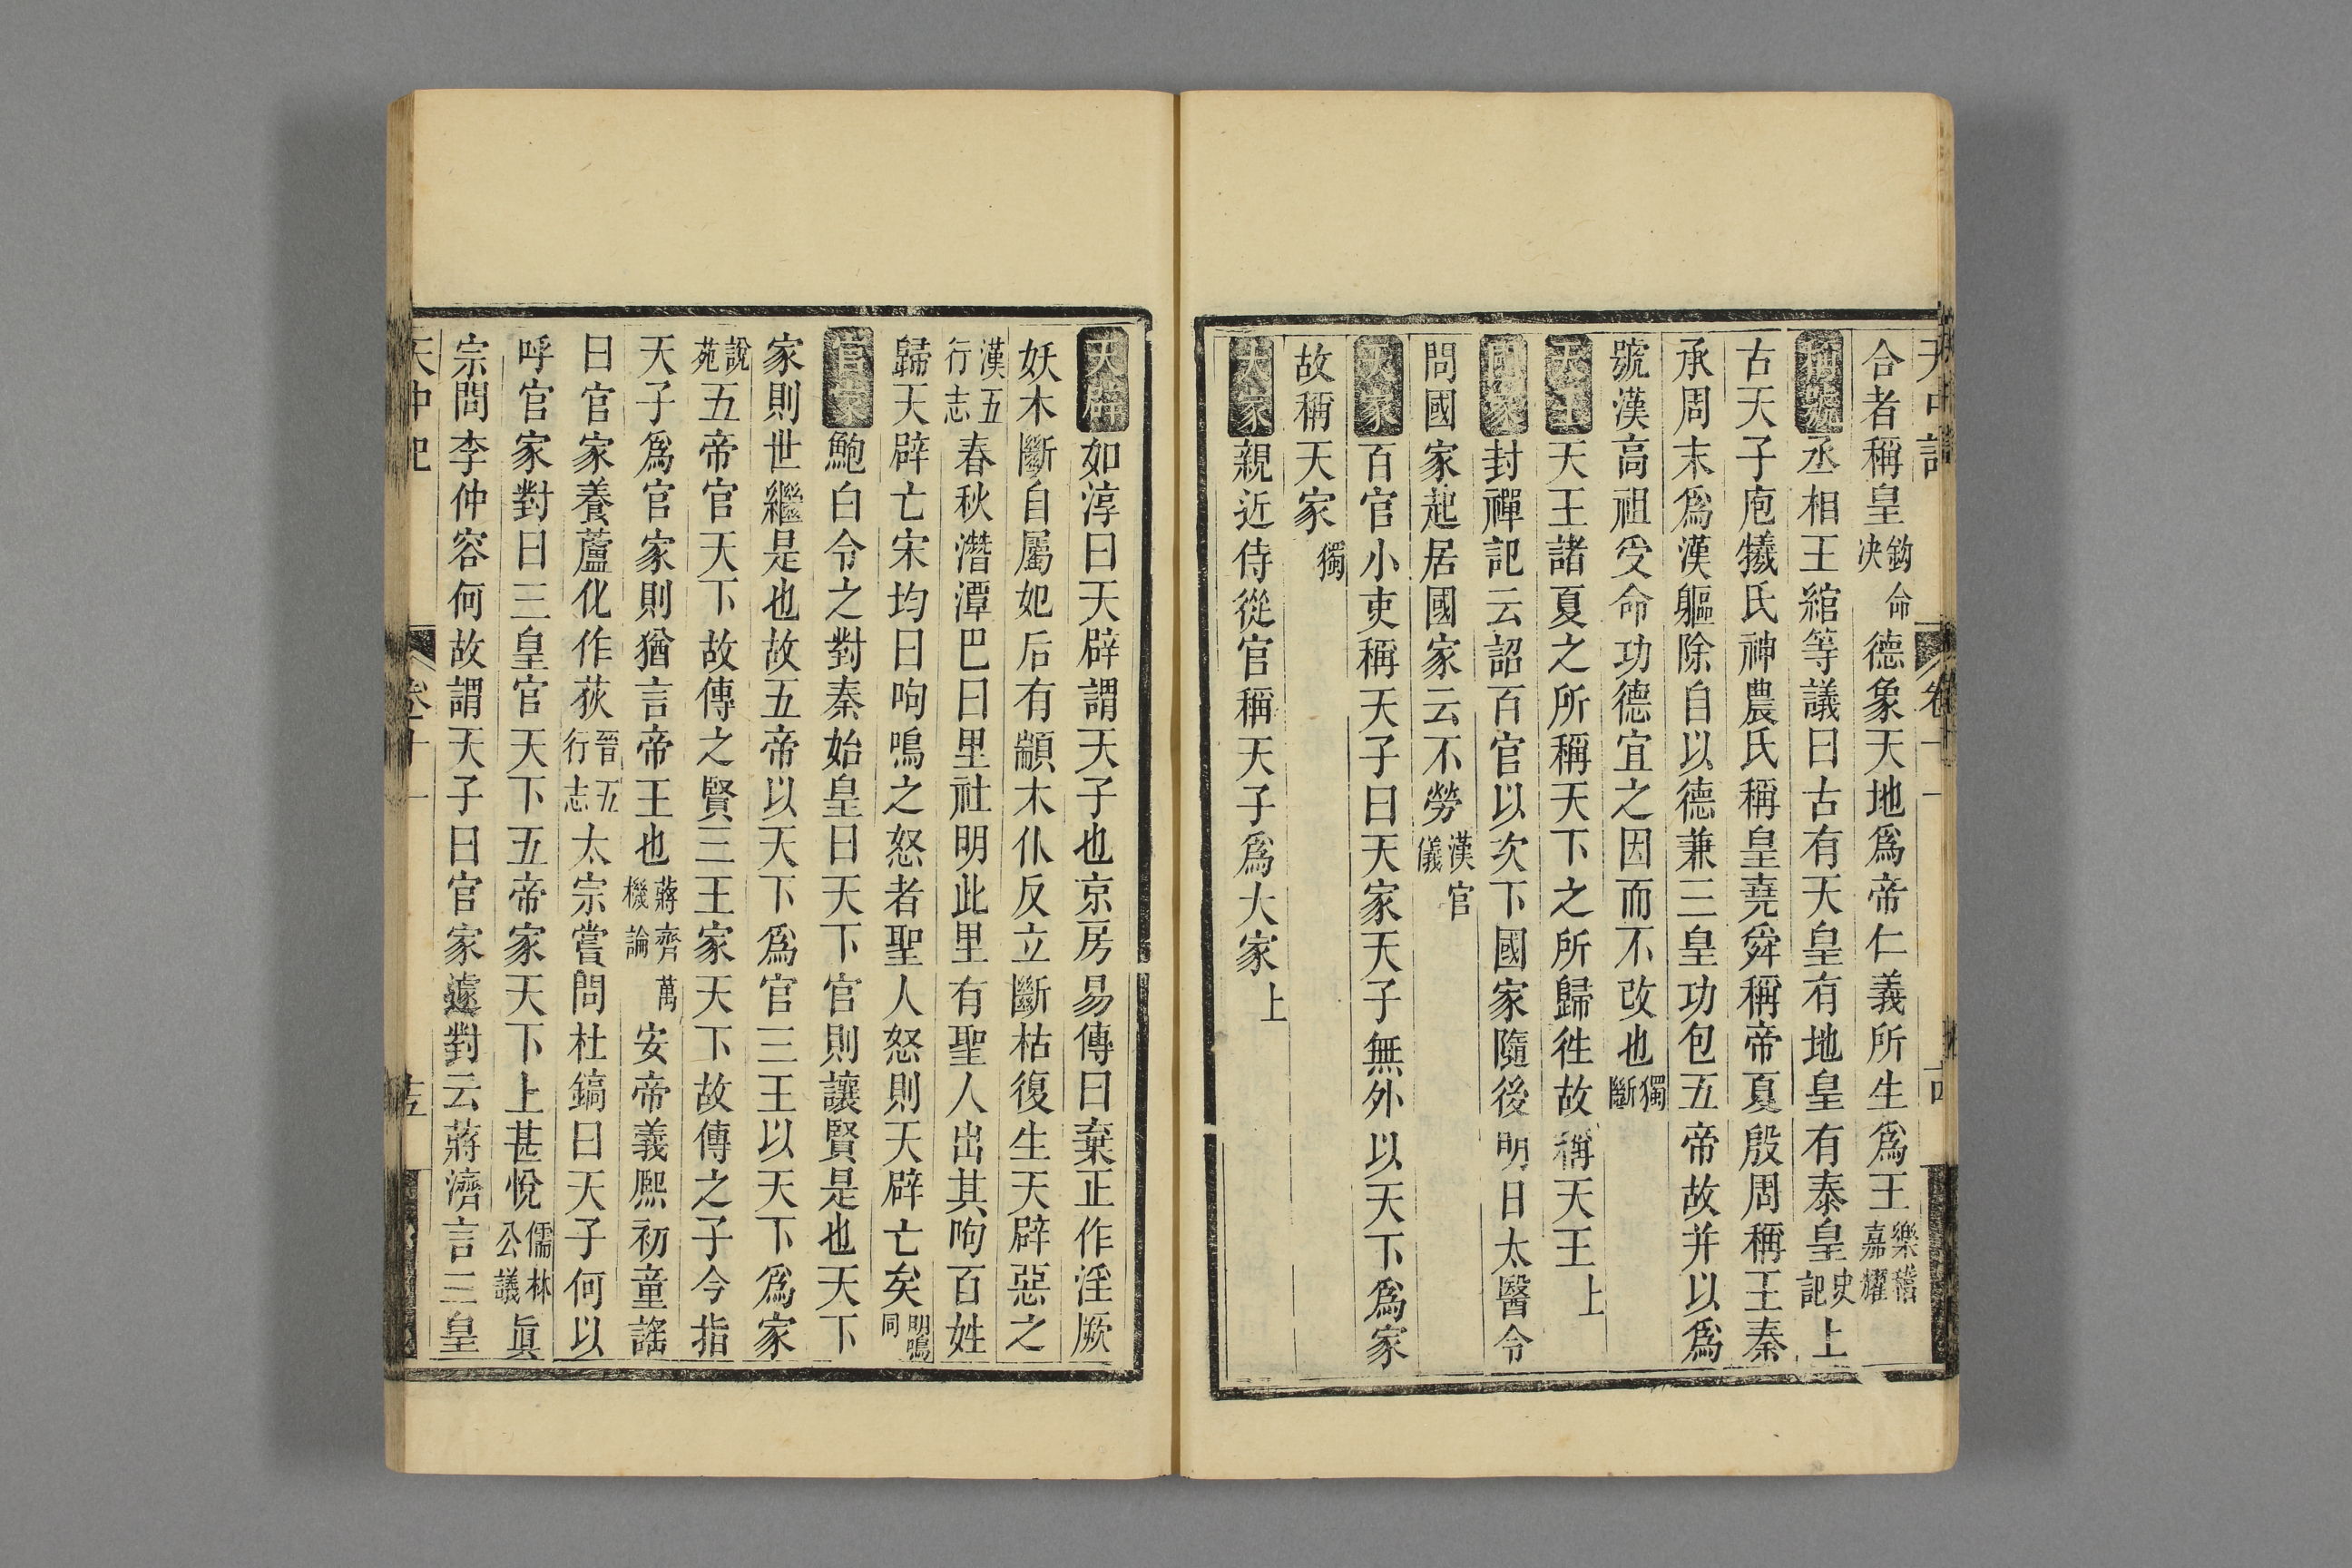 合者稱皇鈎命決德象天地爲帝仁義所生爲王樂稽嘉耀
稱號丞相王綰等議曰古有天皇有地皇有泰皇史記上
古天子庖犧氏神農氏稱皇堯舜稱帝夏殷周稱王秦
承周末爲漢軀除自以德兼三皇功包五帝故并以爲
號漢高祖受命功德宜之因而不改也獨斷
天王天王諸夏之所稱天下之所歸徃故稱天王上
國家封禪記云詔百官以次下國家隨後明日太醫令
問國家起居國家云不勞漢官儀
天家百官小吏稱天子曰天家天子無外以天下爲家
故稱天家獨
大家親近侍從官稱天子爲大家上
天辟如淳曰天辟謂天子也京房易傳曰棄正作淫厥
妖木斷自屬妃后有顓木仆反立斷枯復生天辟惡之
漢五行志春秋潛潭巴曰里社明此里有聖人出其呴百姓
歸天辟亡宋均曰呴鳴之怒者聖人怒則天辟亡矣明鳴同
官家鮑白令之對秦始皇曰天下官則讓賢是也天下
家則世繼是也故五帝以天下爲官三王以天下爲家
說苑五帝官天下故傳之賢三王家天下故傳之子今指
天子爲官家則猶言帝王也蔣齊萬機論安帝義熙初童謠
曰官家養蘆化作荻晉五行志太宗嘗問杜鎬曰天子何以
呼官家對曰三皇官天下五帝家天下上甚悅儒林公議眞
宗問李仲容何故謂天子曰官家遽對云蔣濟言三皇
天中記 卷十一 十五